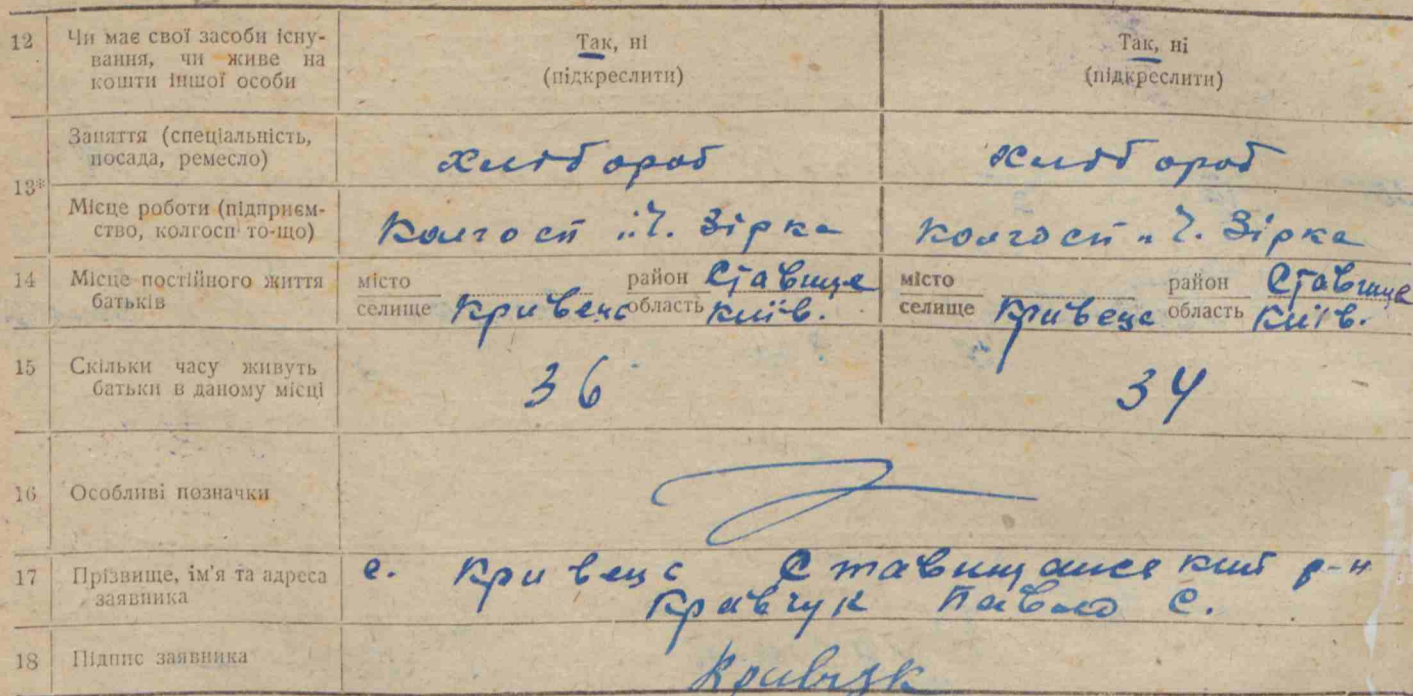 12 Чи має свої засоби існу-
вання, чи живе на
кошти іншої особи
Так, ні
(підкреслити)
Так, ні
(підкреслити)
13*
Заняття (спеціальність,
посада, ремесло)
хлібороб
хлібороб
Місце роботи (підприєм-
ство, колгосп то-що)
Колгосп "Ч. Зірка
Колгосп "Ч. Зірка
14 Місце постійного життя
батьків
місто район Ставище
селище Кривець область Київ.
місто район Ставище
селище Кривець область Київ.
15 Скільки часу живуть
батьки в даному місці
36
34
16 Особливі позначки
17 Прізвище, ім'я та адреса
заявника
с. Кривець Ставищанський р-н
Кравчук Павло С.
18 Підпис заявника
Кравчук